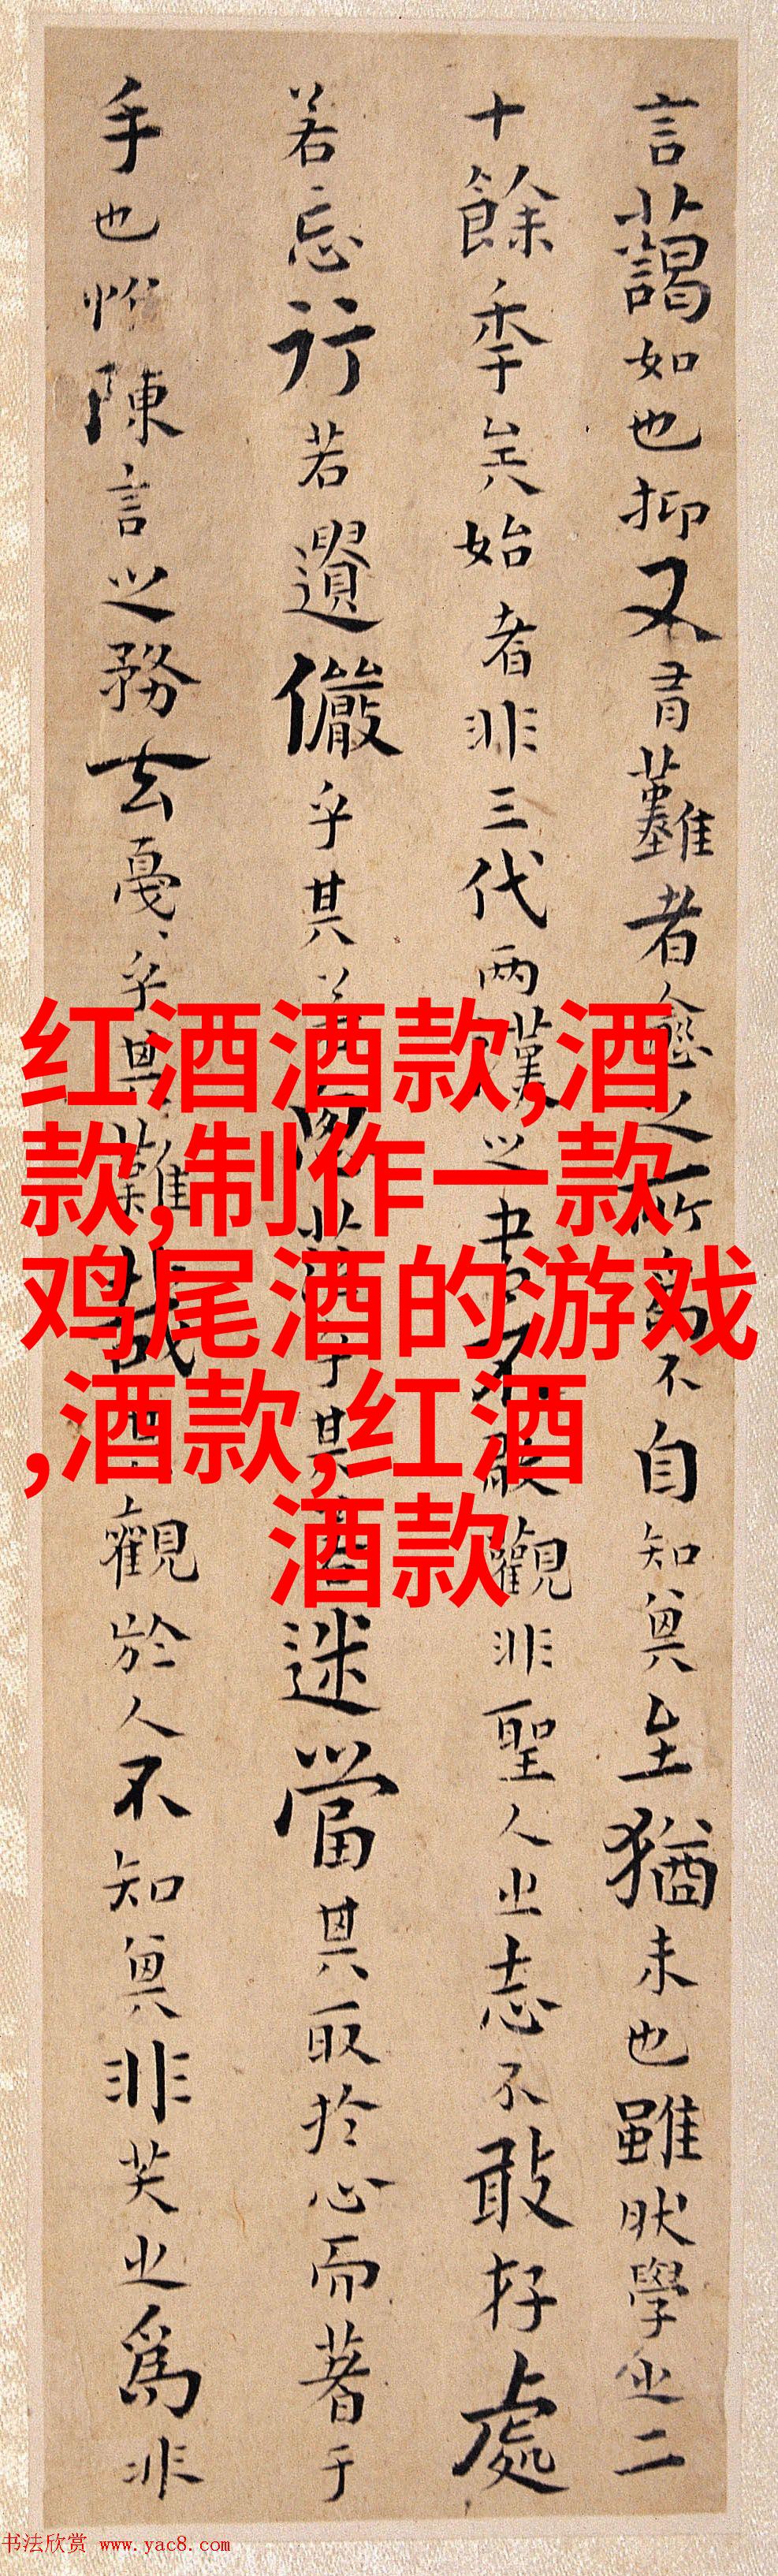 言藹如也抑又有難者愈之所為不自知其至猶未也雖然學之二
十餘年矣始者非三代两漢之書不敢觀非聖人之志不敢存處
若忘行若遺儼乎其若思茫乎其若迷當其取於心而著于
手也惟陳言之務去戛戛乎其難哉其觀於人不知其非笑之為非
红酒酒款,酒
款,制作一款
鸡尾酒的游戏
,酒款,红酒
酒款
书法欣赏 www.yac8.com